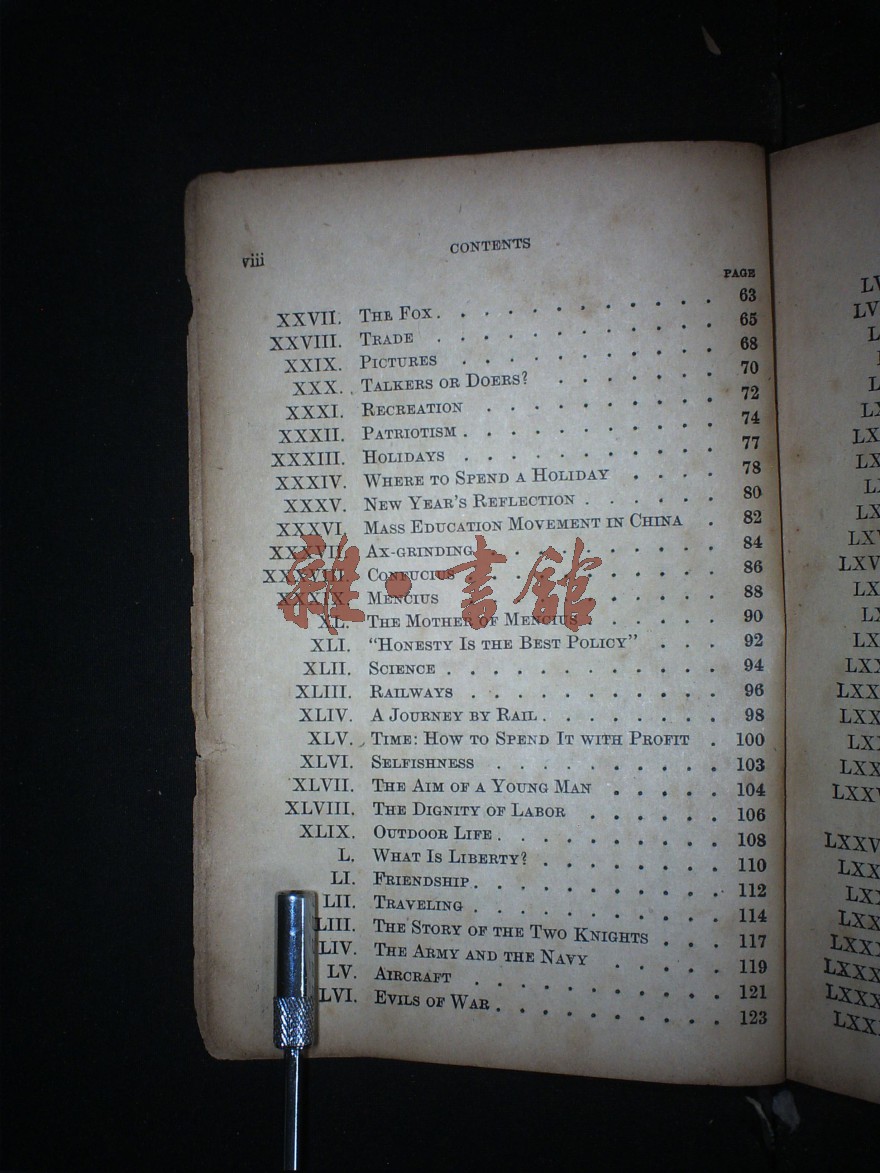 viii
CONTENTS
PAGE
XXVII. THE FOX . . . . . . . . . . . . 63
XXVIII. TRADE . . . . . . . . . . . . 65
XXIX. PICTURES . . . . . . . . . . . 68
XXX. TALKERS OR DOERS? . . . . . . . 70
XXXI. RECREATION . . . . . . . . . . 72
XXXII. PATRIOTISM . . . . . . . . . . . 74
XXXIII. HOLIDAYS . . . . . . . . . . . 77
XXXIV. WHERE TO SPEND A HOLIDAY . . . . 78
XXXV. NEW YEAR'S REFLECTION . . . . . . 80
XXXVI. MASS EDUCATION MOVEMENT IN CHINA . 82
XXXVII. AX-GRINDING . . . . . . . . . . 84
XXXVIII. CONFUCIUS . . . . . . . . . . 86
XXXIX. MENCIUS . . . . . . . . . . . 88
XL. THE MOTHER OF MENCIUS . . . . . . 90
XLI. "HONESTY IS THE BEST POLICY" . . . 92
XLII. SCIENCE . . . . . . . . . . . . 94
XLIII. RAILWAYS . . . . . . . . . . . 96
XLIV. A JOURNEY BY RAIL . . . . . . . . 98
XLV. TIME: HOW TO SPEND IT WITH PROFIT . 100
XLVI. SELFISHNESS . . . . . . . . . . 103
XLVII. THE AIM OF A YOUNG MAN . . . . . 104
XLVIII. THE DIGNITY OF LABOR . . . . . . 106
XLIX. OUTDOOR LIFE . . . . . . . . . . 108
L. WHAT IS LIBERTY? . . . . . . . . 110
LI. FRIENDSHIP . . . . . . . . . . . 112
LII. TRAVELING . . . . . . . . . . . 114
LIII. THE STORY OF THE TWO KNIGHTS . . . 117
LIV. THE ARMY AND THE NAVY . . . . . 119
LV. AIRCRAFT . . . . . . . . . . . 121
LVI. EVILS OF WAR . . . . . . . . . . 123
雜·書館